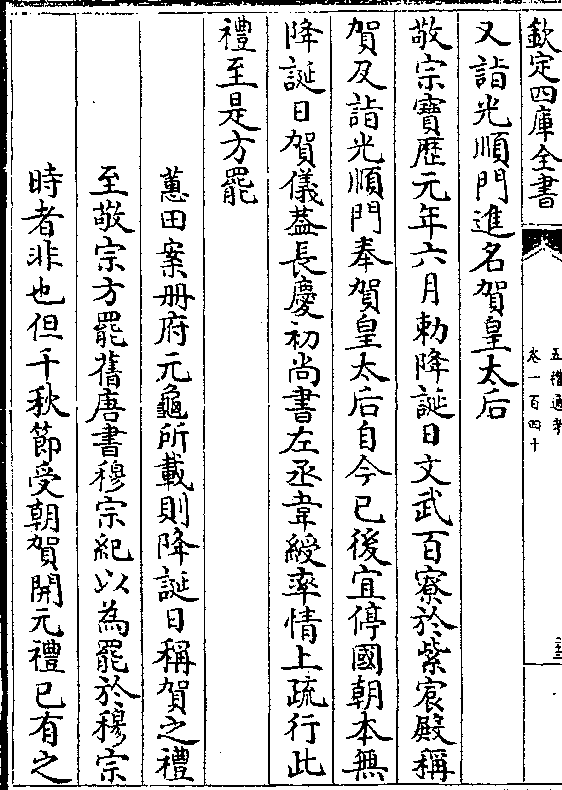 欽定四庫全書
五禮通考
卷一百四十
又詣光順門進名賀皇太后
敬宗寶歷元年六月勅降誕日文武百寮於紫宸殿稱
賀及詣光順門奉賀皇太后自今已後宜停國朝本無
降誕日賀儀葢長慶初尚書左丞韋綬率情上疏行此
禮至是方罷
蕙田案冊府元龜所載則降誕日稱賀之禮
至敬宗方罷舊唐書穆宗紀以為罷於穆宗
時者非也但千秋節受朝賀開元禮已有之